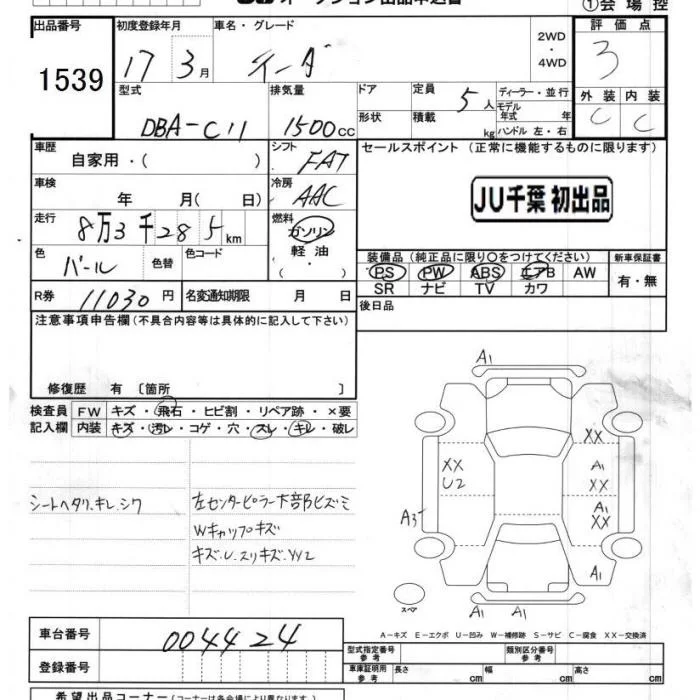 ①会場控
出品番号
1539
初度登録年月
17 3月
車名・グレード
ティーダ
2WD
・
4WD
評価点
3
外装 内装
C C
型式
DBA-C11
排気量
1500cc
ドア
形状
定員
5人
積載
kg
ディーラー・並行
モデル
年式 年
ハンドル 左・右
車歴
自家用・( )
シフト
FAT
車検
年 月( 日)
冷房
AAC
走行
8万3千285km
燃料
ガソリン
軽油
( ・ )
色
パール
色替
色コード
R券
11030円
名変通知期限 月 日
セールスポイント (正常に機能するものに限ります)
JU千葉 初出品
装備品 (純正品に限り○をつけてください)
PS PW ABS エアB AW
SR ナビ TV カワ
新車保証書
有・無
後日品
注意事項申告欄(不具合内容等は具体的に記入して下さい)
修復歴 有 〔箇所 〕
検査員
記入欄
FW キズ・飛石・ヒビ割・リペア跡・×要
内装 キズ・汚レ・コゲ・穴・スレ・キレ・破レ
シートヘタリ.キレ.シワ
左センターピラー下部ヒズミ
Wキャップキズ
キズ.U.スリキズ.
A1
XX
XX
U2
A1
XX
A1
XX
A3
A1
A1 A1
スペア
A-キズ E-エクボ U-凹み W-補修跡 S-サビ C-腐食 XX-交換済
車台番号
004424
登録番号
型式指定番号
参考
類別区分番号
参考
車庫証明用
参考
長さ cm 幅 cm 高さ cm
希望出品コーナー